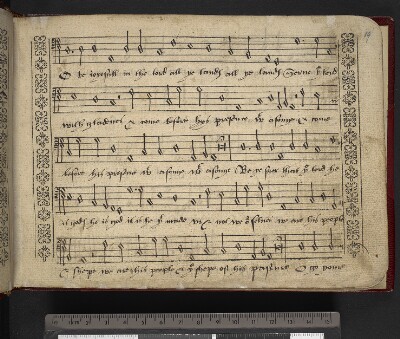 O be ioyfull in the lord all ye lands all ye lands Serue ye lord
with gladnes & come before hys presence wt a songe & come
before his presence wt a songe wt a songe Be ye sure that ye lord he
is god he is god it is he yt made vs & not we or selues we are his people
& shepe we are his people & ye shepe of his pasture O go your